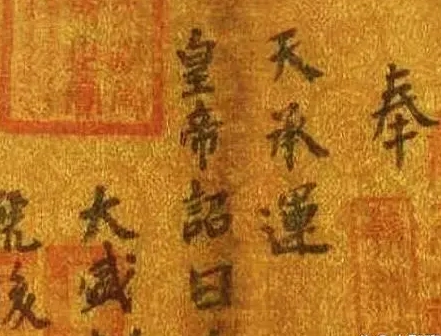 奉
天承運
皇帝詔曰
大盛